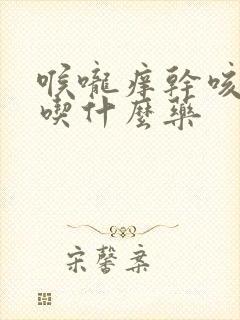 喉嚨痒幹咳
喫什麼藥
宋馨棄